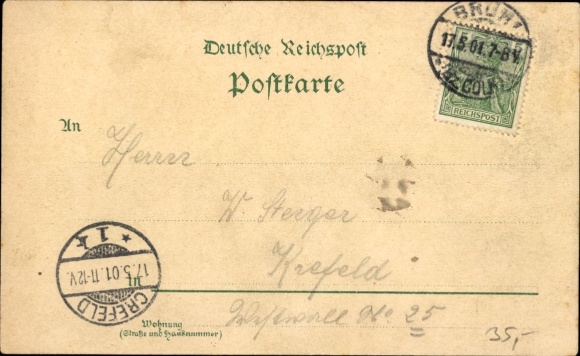 BRÜHL
17.5.01.7-8V.
(BZ. CÖLN)
REICHSPOST
Deutsche Reichspost
Postkarte
An
Herrn
W. Sterger
Krefeld
in
Westwall No 25
Wohnung
(Straße und Hausnummer)
CREFELD
17.5.01.11-12V.
* 1 k
35,-